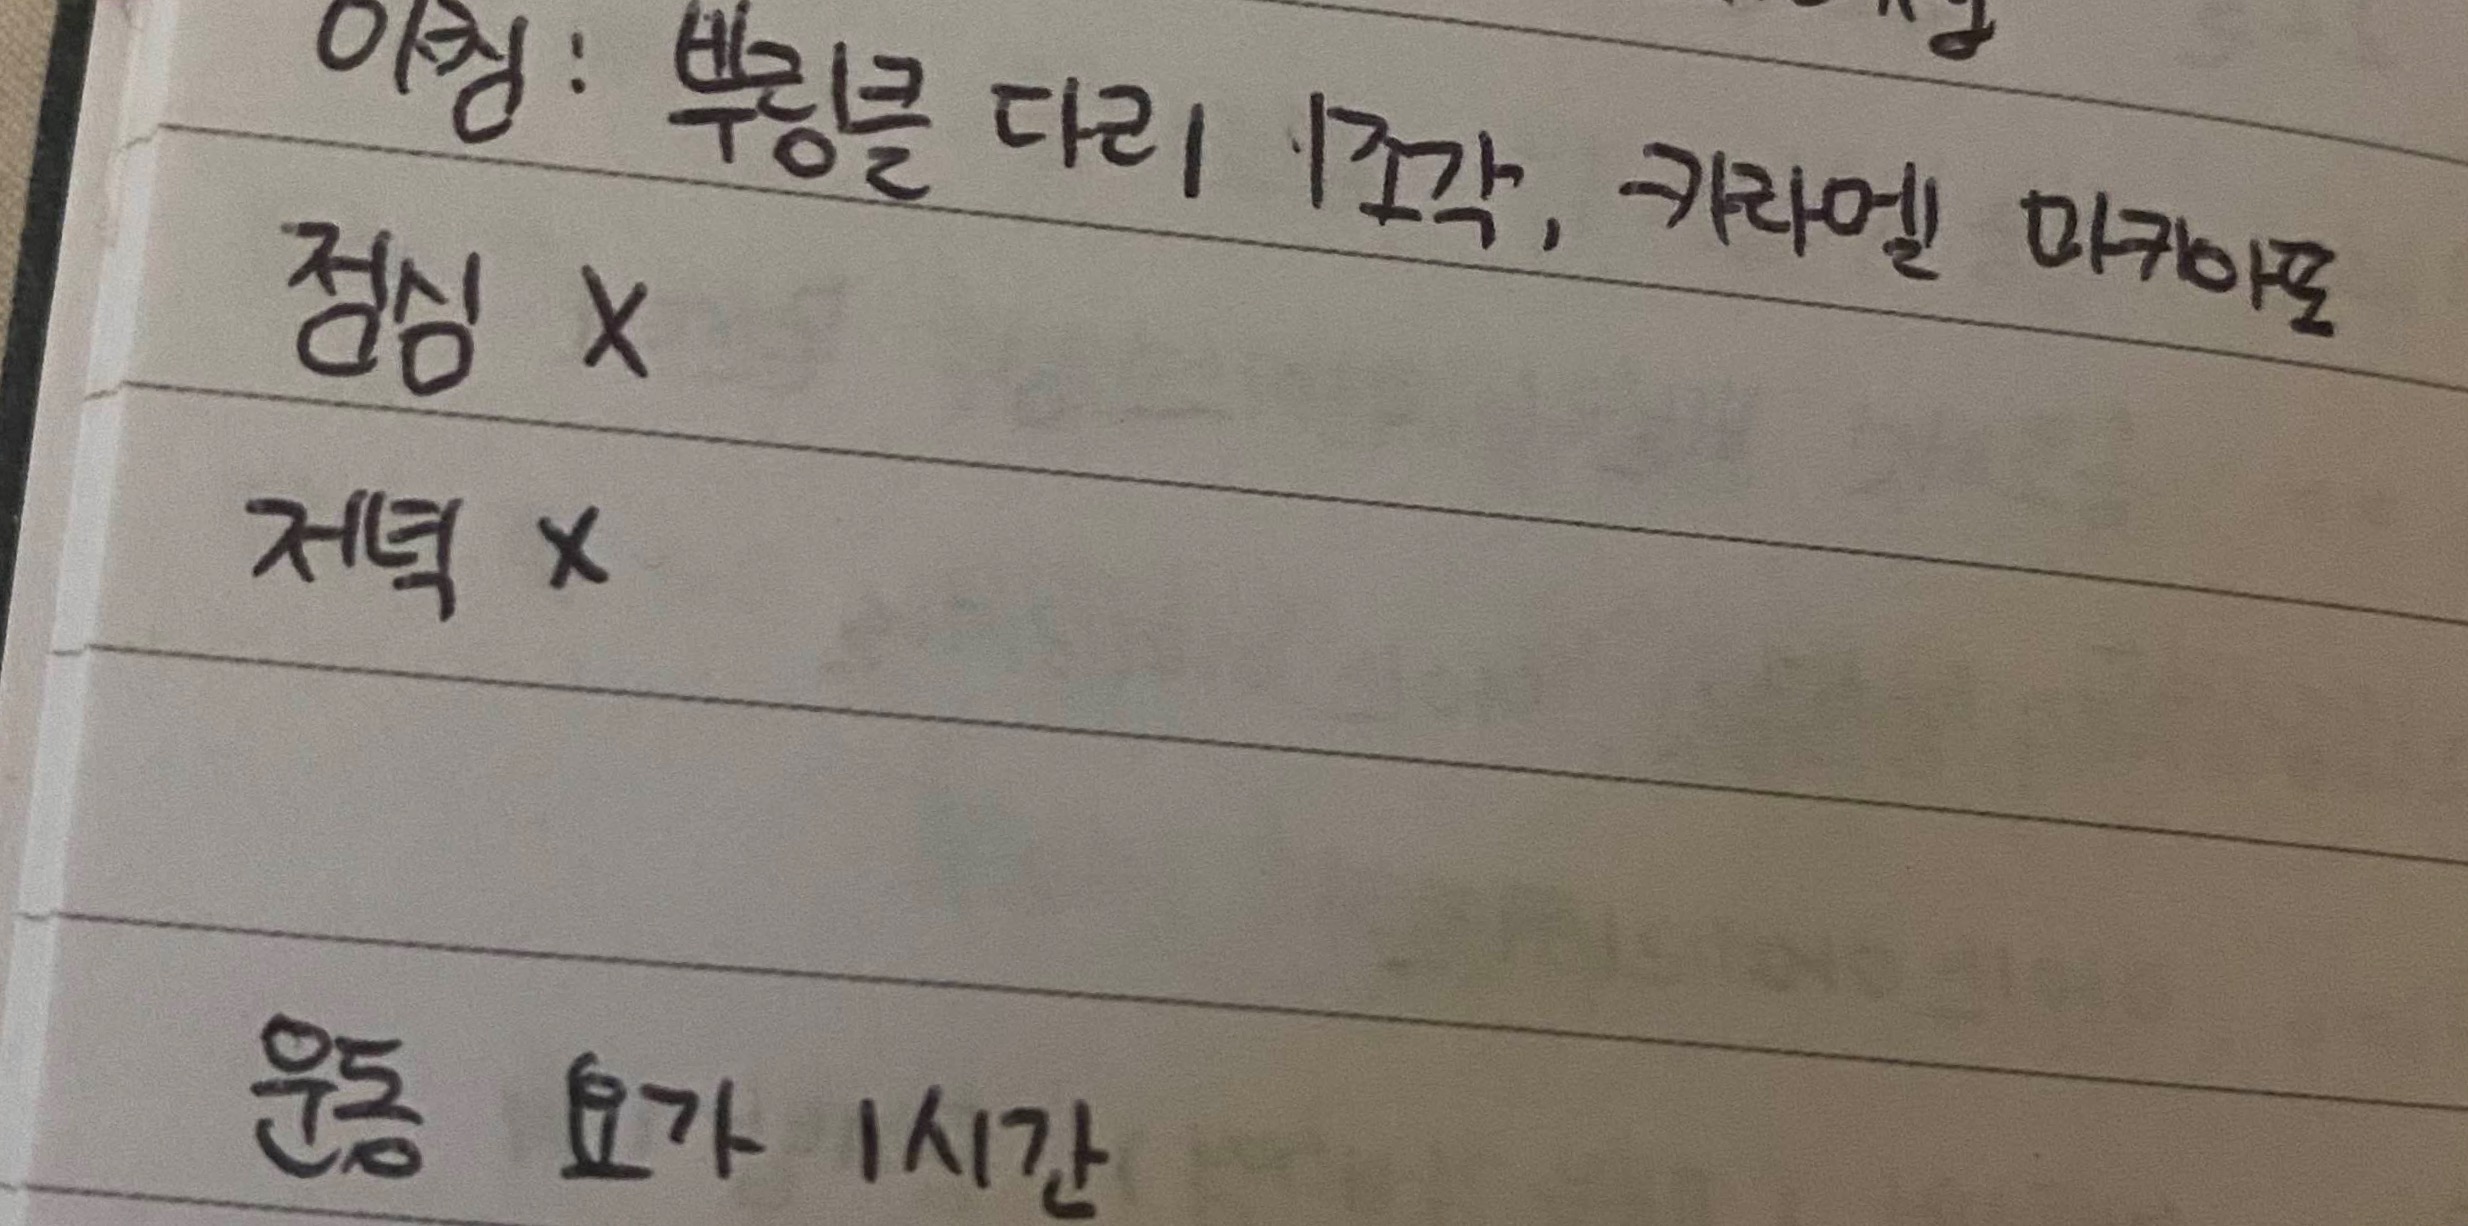 아침: 뿌링클 다리 1조각, 카라멜 마키아또
점심 X
저녁 X
운동 요가 1시간